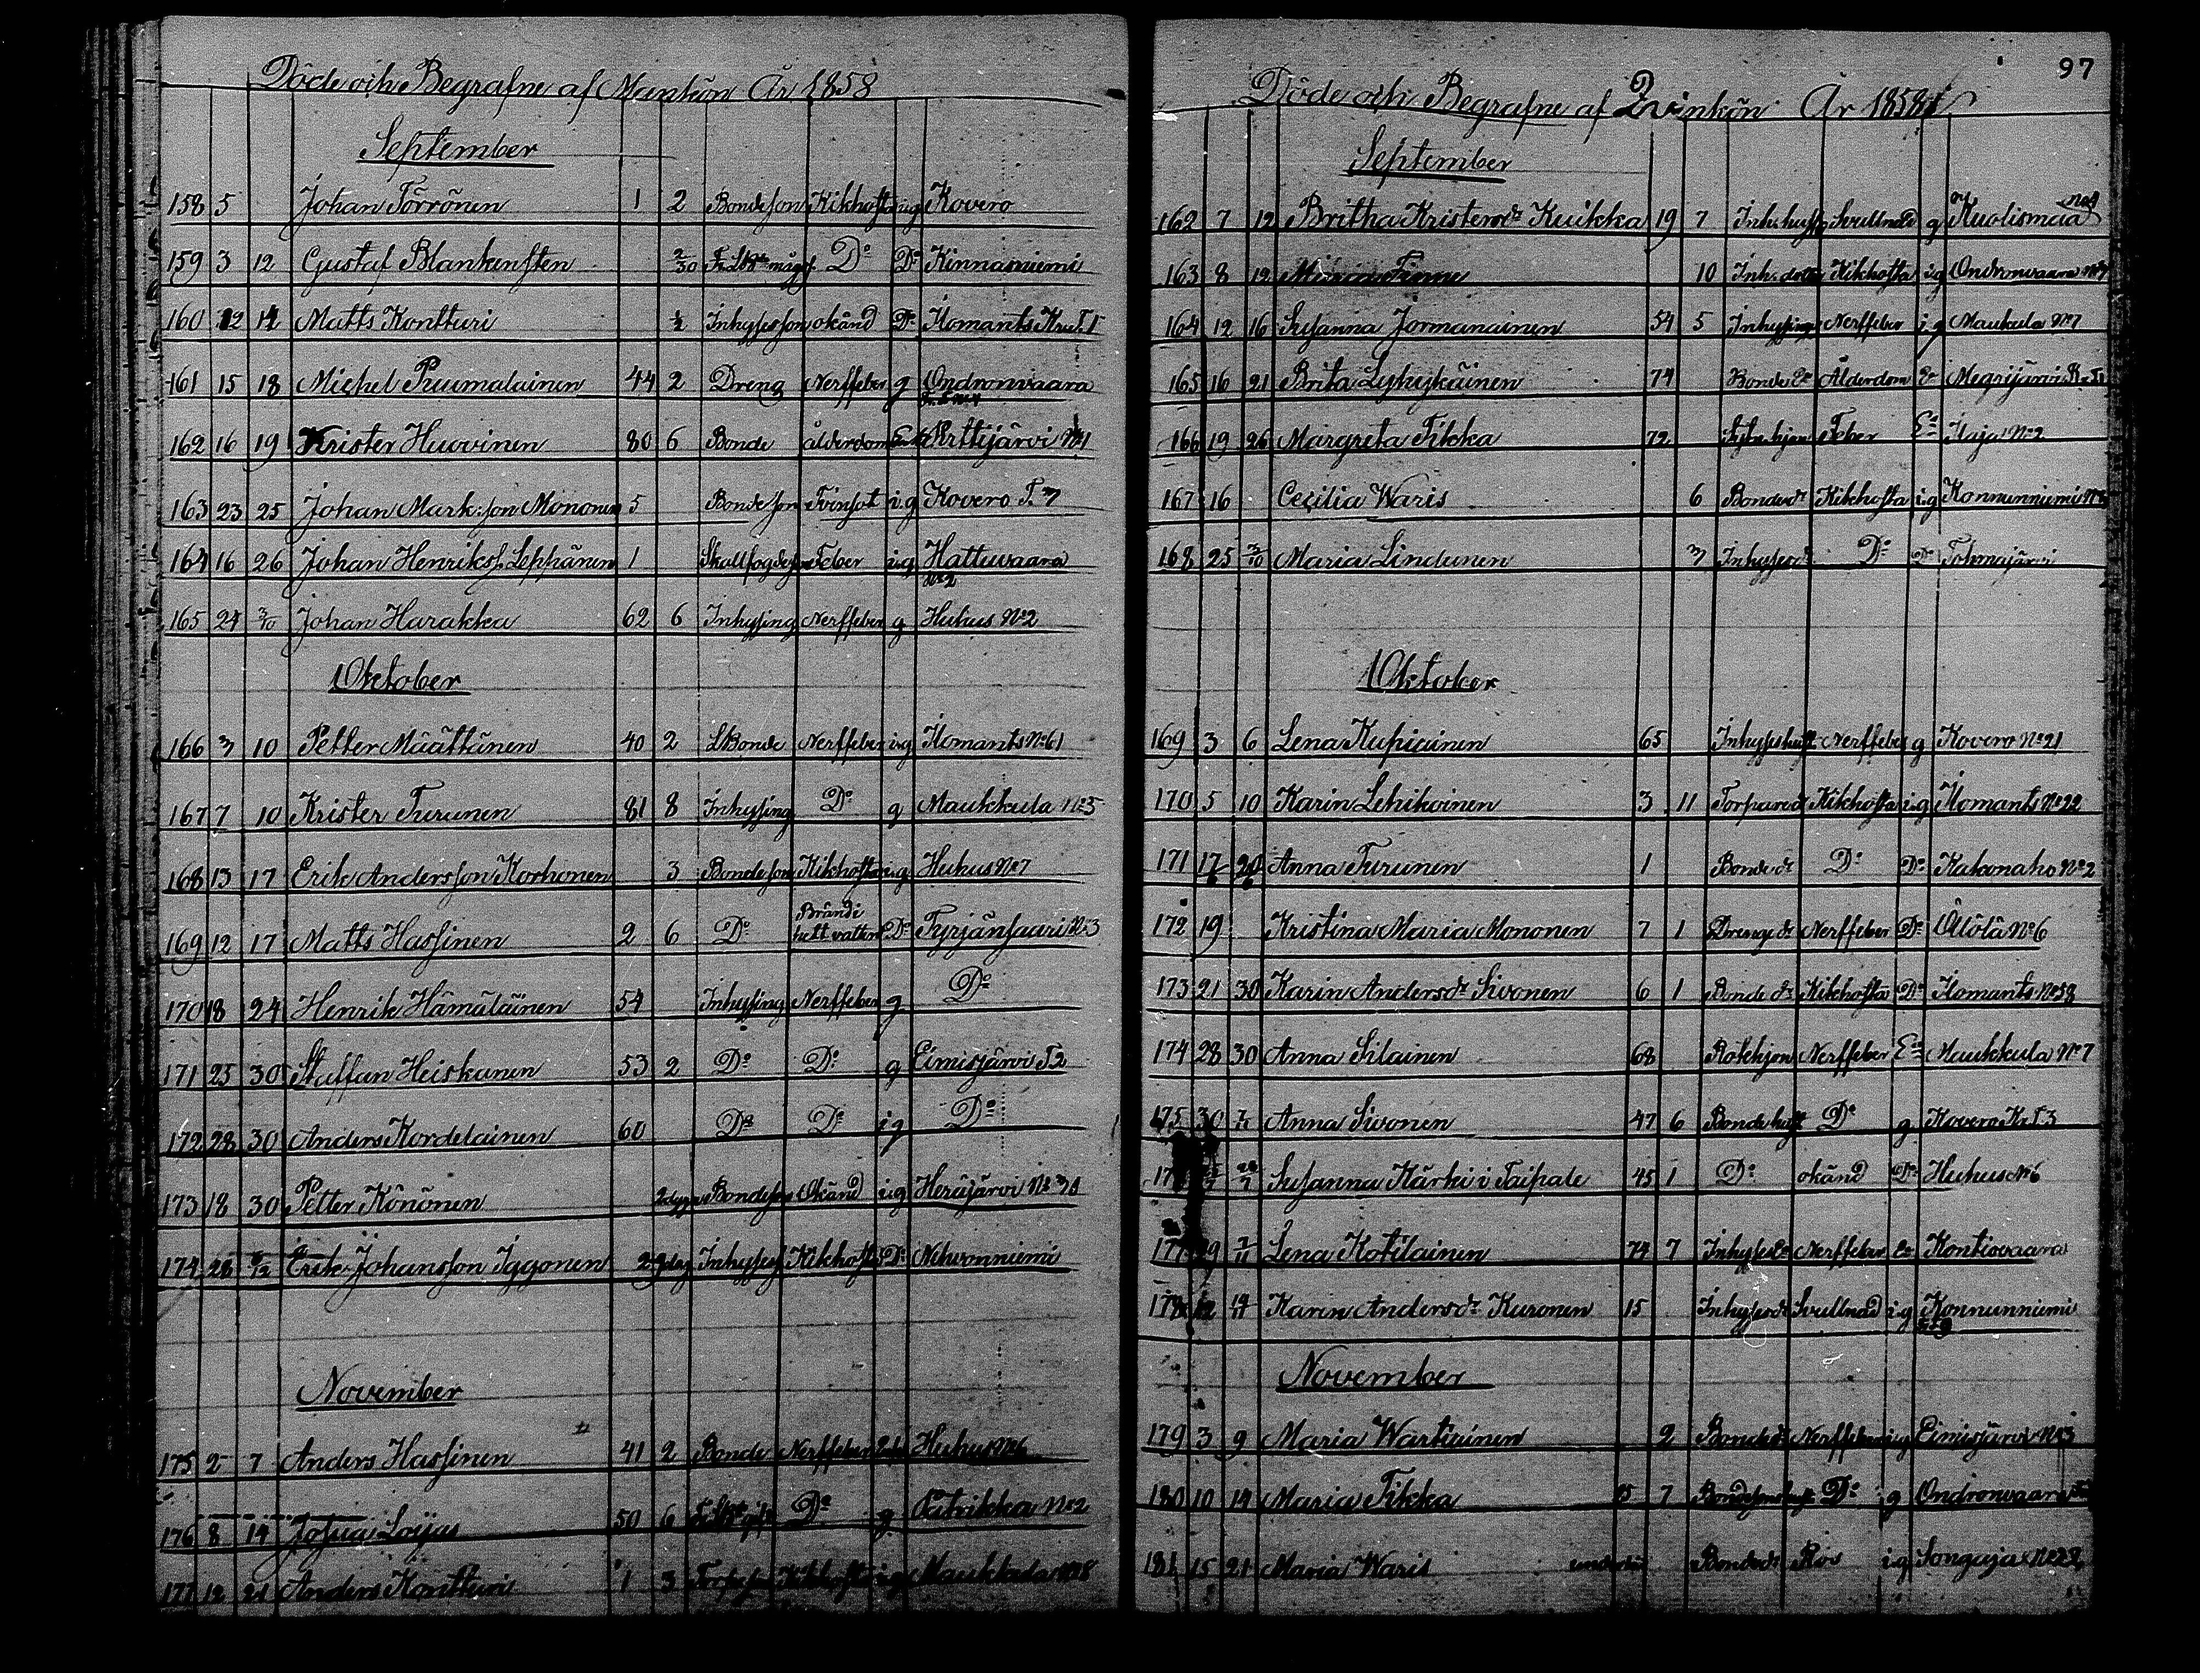 Döde och Begrafne af Mankön År 1858
September
158 5 Johan Törrönen 1 2 Bondeson Kikhosta i.g Kovero
159 3 12 Gustaf Blankensten 2/30 Do Do Kinnasniemi
160 12 14 Matts Kontturi 1/2 Inhysesson okänd Do Ilomants
161 15 18 Michel Puumalainen 44 2 Dreng Nerffeber g Ondronvaara
162 16 19 Krister Huovinen 80 6 Bonde ålderdom Enk Perttijärvi No1
163 23 25 Johan Mark:son Mononen 5 Bondeson Tvinsot i.g Kovero T. 7
164 16 26 Johan Henrikss. Leppänen 1 Skallfogdeson Feber i.g Hattuvaara
No2
165 24 3/10 Johan Harakka 62 6 Inhysing Nerffeber g Huhus No2
Oktober
166 3 10 Petter Määttänen 40 2 LBonde Nerffeber i.g Ilomants No61
167 7 10 Krister Turunen 81 8 Inhysing Do g Maukkula No5
168 13 17 Erik Andersson Korhonen 3 Bondeson Kikhosta i.g Huhus No7
169 12 17 Matts Hassinen 2 6 Do Brändi hett vatten Do Tyrjänsaari No3
170 18 24 Henrik Hämäläinen 54 Inhysing Nerffeber g Do
171 25 30 Staffan Heiskanen 53 2 Do Do g Eimisjärvi T2
172 28 30 Anders Kordelainen 60 Do Do i g Do
173 18 30 Petter Könönen 2 dygn Bondeson Okänd i.g Heräjärvi No
174 28 Erik Johansson Iggonen 2 Inhyses Kikhosta Do Nehvonniemi
November
175 2 7 Anders Hassinen 41 2 Bonde Nerffeber Huhus No6
176 8 14 Josua Loija 50 6 Do g Patrikka No2
177 12 21 Anders Kontturi 1 3 Torpson Kikhosta i.g Maukkula No8
97
Döde och Begrafne af Qvinkön År 1858
September
162 7 12 Britha Kristersdr Kuikka 19 7 Svullnad g Kuolismaa No4
163 8 12 10 Inh. dotter Kikhosta i.g Ondronvaara No7
164 12 16 Susanna Jormanainen 54 5 Inhysing Nerffeber i g Maukula No7
165 16 21 Brita Lyhykäinen 74 Bonde Ea Ålderdom Ea Megrijärvi
166 19 26 Margreta Tikka 72 Feber Ea Ilaja No2
167 16 Cecilia Waris 6 Bondedr Kikhosta i.g Konnunniemi
168 25 3/10 Maria Lindunen 3 Inhysesdr Do Do Tohmajärvi
Oktober
169 3 6 Lena Kupiainen 65 Inhyseshust Nerffeber g Kovero No21
170 5 10 Karin Lehikoinen 3 11 Torparedr Kikhosta i.g Ilomants No22
171 17 20 Anna Turunen 1 Bondedr Do Do Kakonaho No2
172 19 Kristina Maria Mononen 7 1 Drengedr Nerffeber Do Ölölä No6
173 21 30 Karin Andersdr Sivonen 6 1 Bondedr Kikhosta Do Ilomants No58
174 28 30 Anna Silainen 68 Rotehjon Nerffeber Ea Maukkula No7
175 30 Anna Sivonen 47 6 Bondehust Do g Kovero Kr.T.3
Susanna Kärki i Taipale 45 1 Do okänd Do Huhus No6
177 29 Lena Kotilainen 74 7 Inhyses Ea Nerffeber Ea Kontiovaara
178 12 Karin Andersdr Kuronen 15 Inhysesdr Svullnad i.g Konnunniemi
November
179 3 9 Maria Wartiainen 2 Bondedr Nerffeber i.g Eimisjärvi No3
180 10 14 Maria Tikka 7 Do g Ondronvaara
181 15 21 Maria Waris Bondedr Ros i.g Songuja No22